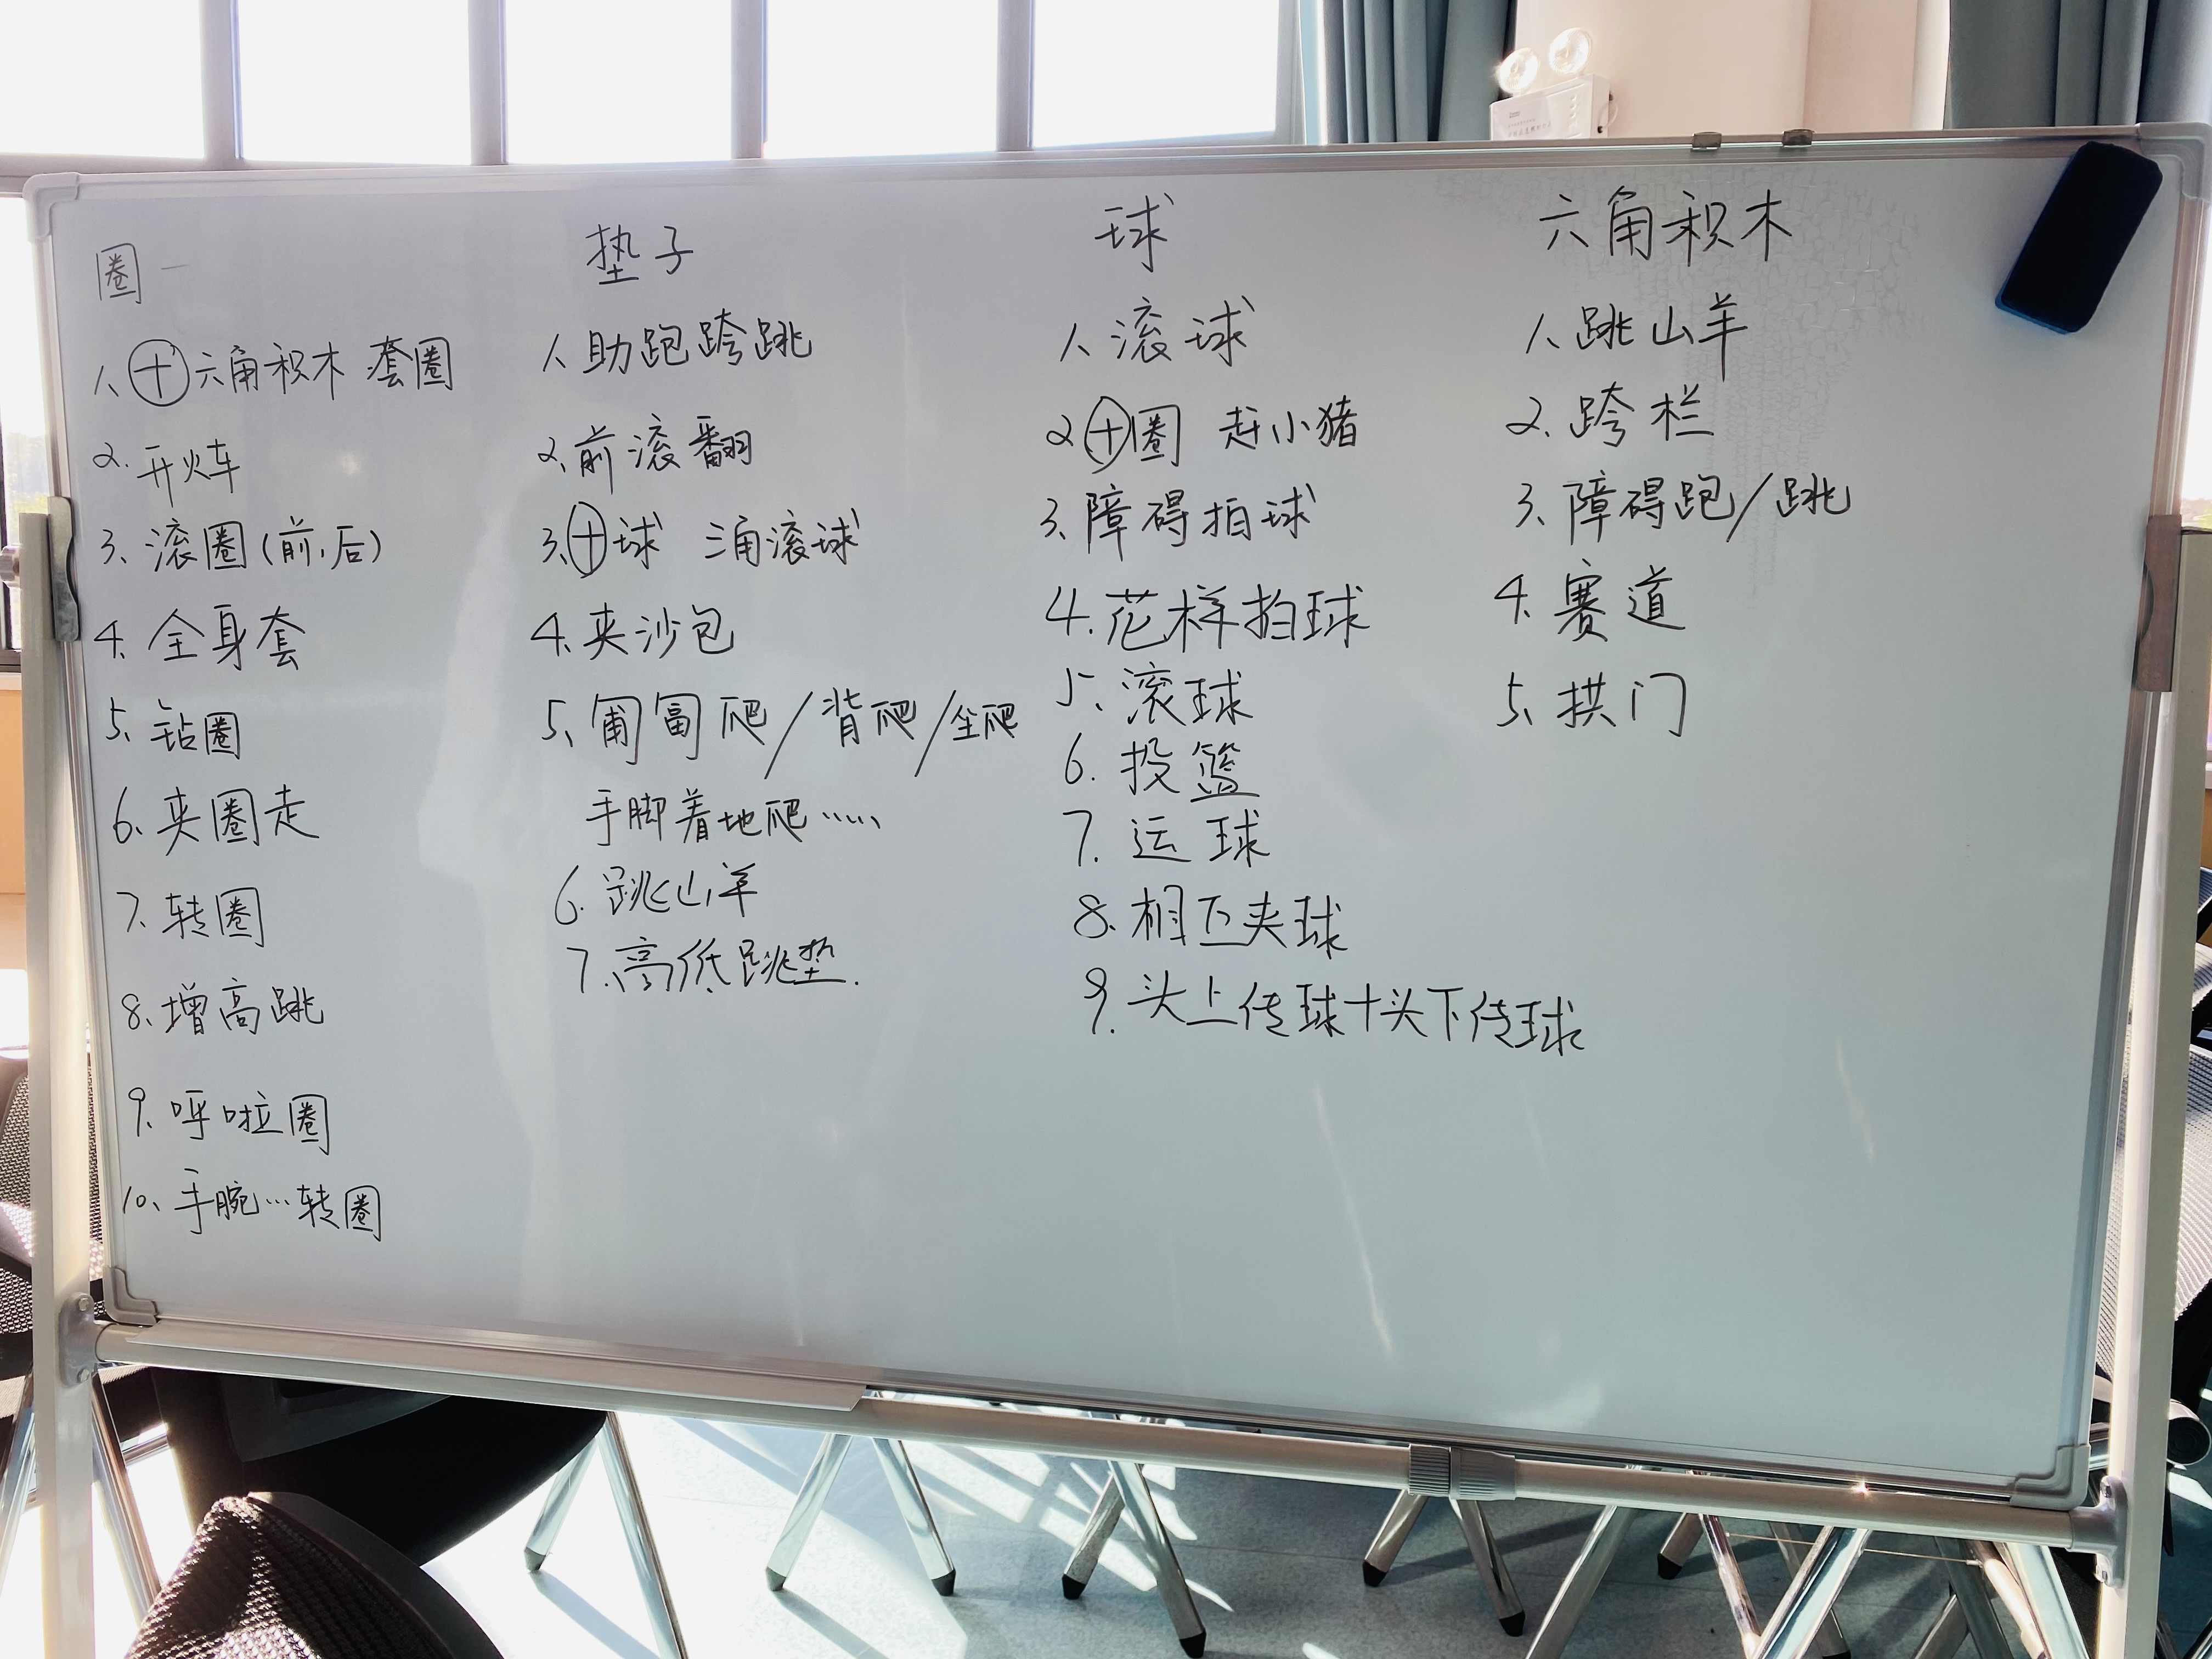 圈
1、⊕六角积木 套圈
2. 开火车
3、滚圈(前、后)
4. 全身套
5. 钻圈
6、夹圈走
7、转圈
8、增高跳
9. 呼啦圈
10、手腕…转圈
垫子
1、助跑跨跳
2、前滚翻
3、⊕球 三角滚球
4. 夹沙包
5、匍匐爬/背爬/坐爬
手脚着地爬……
6. 跳山羊
7. 高低跳垫.
球
1、滚球
2 ⊕圈 赶小猪
3、障碍拍球
4. 花样拍球
5、滚球
6. 投篮
7. 运球
8. 相互夹球
9. 头上传球+头下传球
六角积木
1、跳山羊
2. 跨栏
3、障碍跑/跳
4、赛道
5、拱门